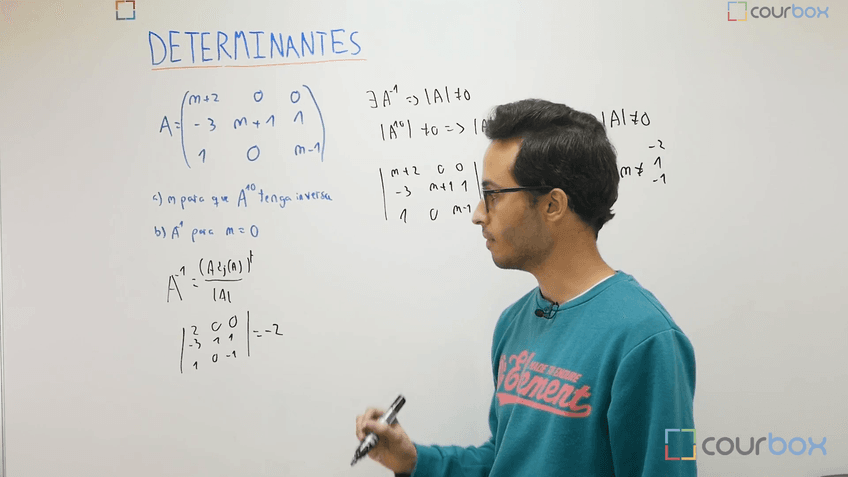 courbox
DETERMINANTES
A=
m+2 0 0
-3 m+1 1
1 0 m-1
a) m para que A¹⁰ tenga inversa
b) A⁻¹ para m=0
A⁻¹ = (Adj(A))ᵗ / |A|
2 0 0
-3 1 1 = -2
1 0 -1
∃A⁻¹ => |A|≠0
|A¹⁰| ≠0 => |A |A|≠0
m+2 0 0
-3 m+1 1
1 0 m-1
m≠ -2
1
-1
MADE TO ENDURE
Element
courbox